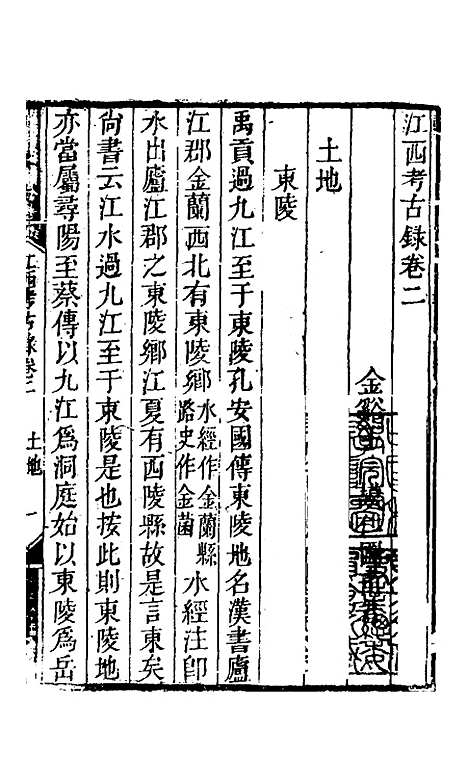 江西考古錄卷二
金谿王謨
土地
東陵
禹貢過九江至于東陵孔安國傳東陵地名漢書廬
江郡金蘭西北有東陵鄉水經作金蘭縣路史作金菌水經注卽
水出廬江郡之東陵鄉江夏有西陵縣故是言東矣
尚書云江水過九江至于東陵是也按此則東陵地
亦當屬尋陽至蔡傳以九江爲洞庭始以東陵爲岳
江西考古錄卷二
土地
一